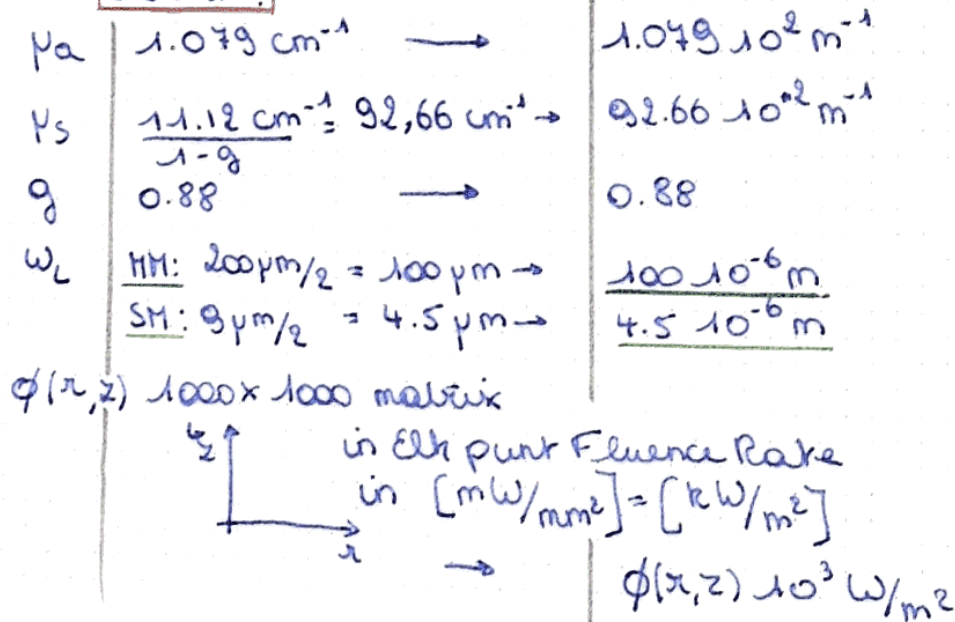 μa 1.079 cm⁻¹ → 1.079 10² m⁻¹
μs 11.12 cm⁻¹/1-g = 92,66 cm⁻¹ → 92.66 10⁺² m⁻¹
g 0.88 → 0.88
ω_L MM: 200μm/2 = 100μm → 100 10⁻⁶ m
SM: 9μm/2 = 4.5μm → 4.5 10⁻⁶ m
φ(r,z) 1000x1000 matrix
z in Elk punt Fluence Rate
in [mW/mm²] = [kW/m²]
r → φ(r,z) 10³ W/m²